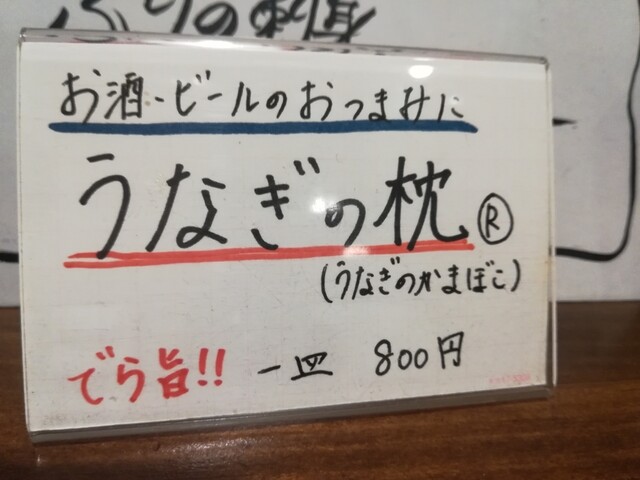 お酒・ビールのおつまみに
うなぎの枕®
(うなぎのかまぼこ)
でら旨!! 一皿 800円